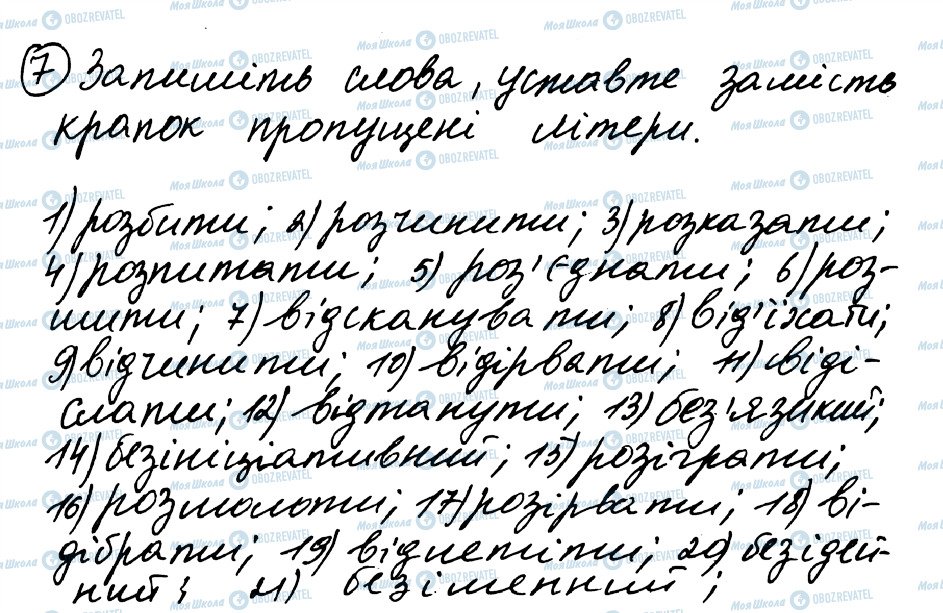 7 Запишіть слова, уставте замість
крапок пропущені літери.
1) розбити; 2) розчинити; 3) розказати;
4) розпитати; 5) роз'єднати; 6) роз-
шити; 7) відсканувати; 8) від'їжати;
9) відчинити; 10) відірвати; 11) віді-
слати; 12) відтанути; 13) без'язикий;
14) безініціативний; 15) розіграти;
16) розмолоти; 17) розірвати; 18) ві-
дібрати; 19) віднетіти; 20) безідей-
ний; 21) безіменний;